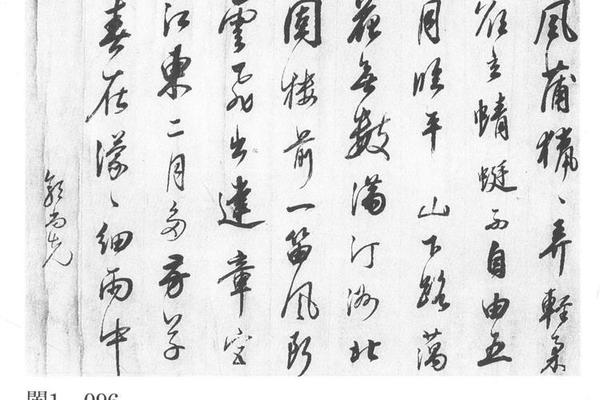 風蒲獵〻弄輕柔
欲立蜻蜓不自由五
月臨平山下路藕
花無數滿汀洲北
固樓前一笛風斷
雲飛出建章宮
江東二月多芳草
春在濛〻細雨中
郭尚先
閩1-096